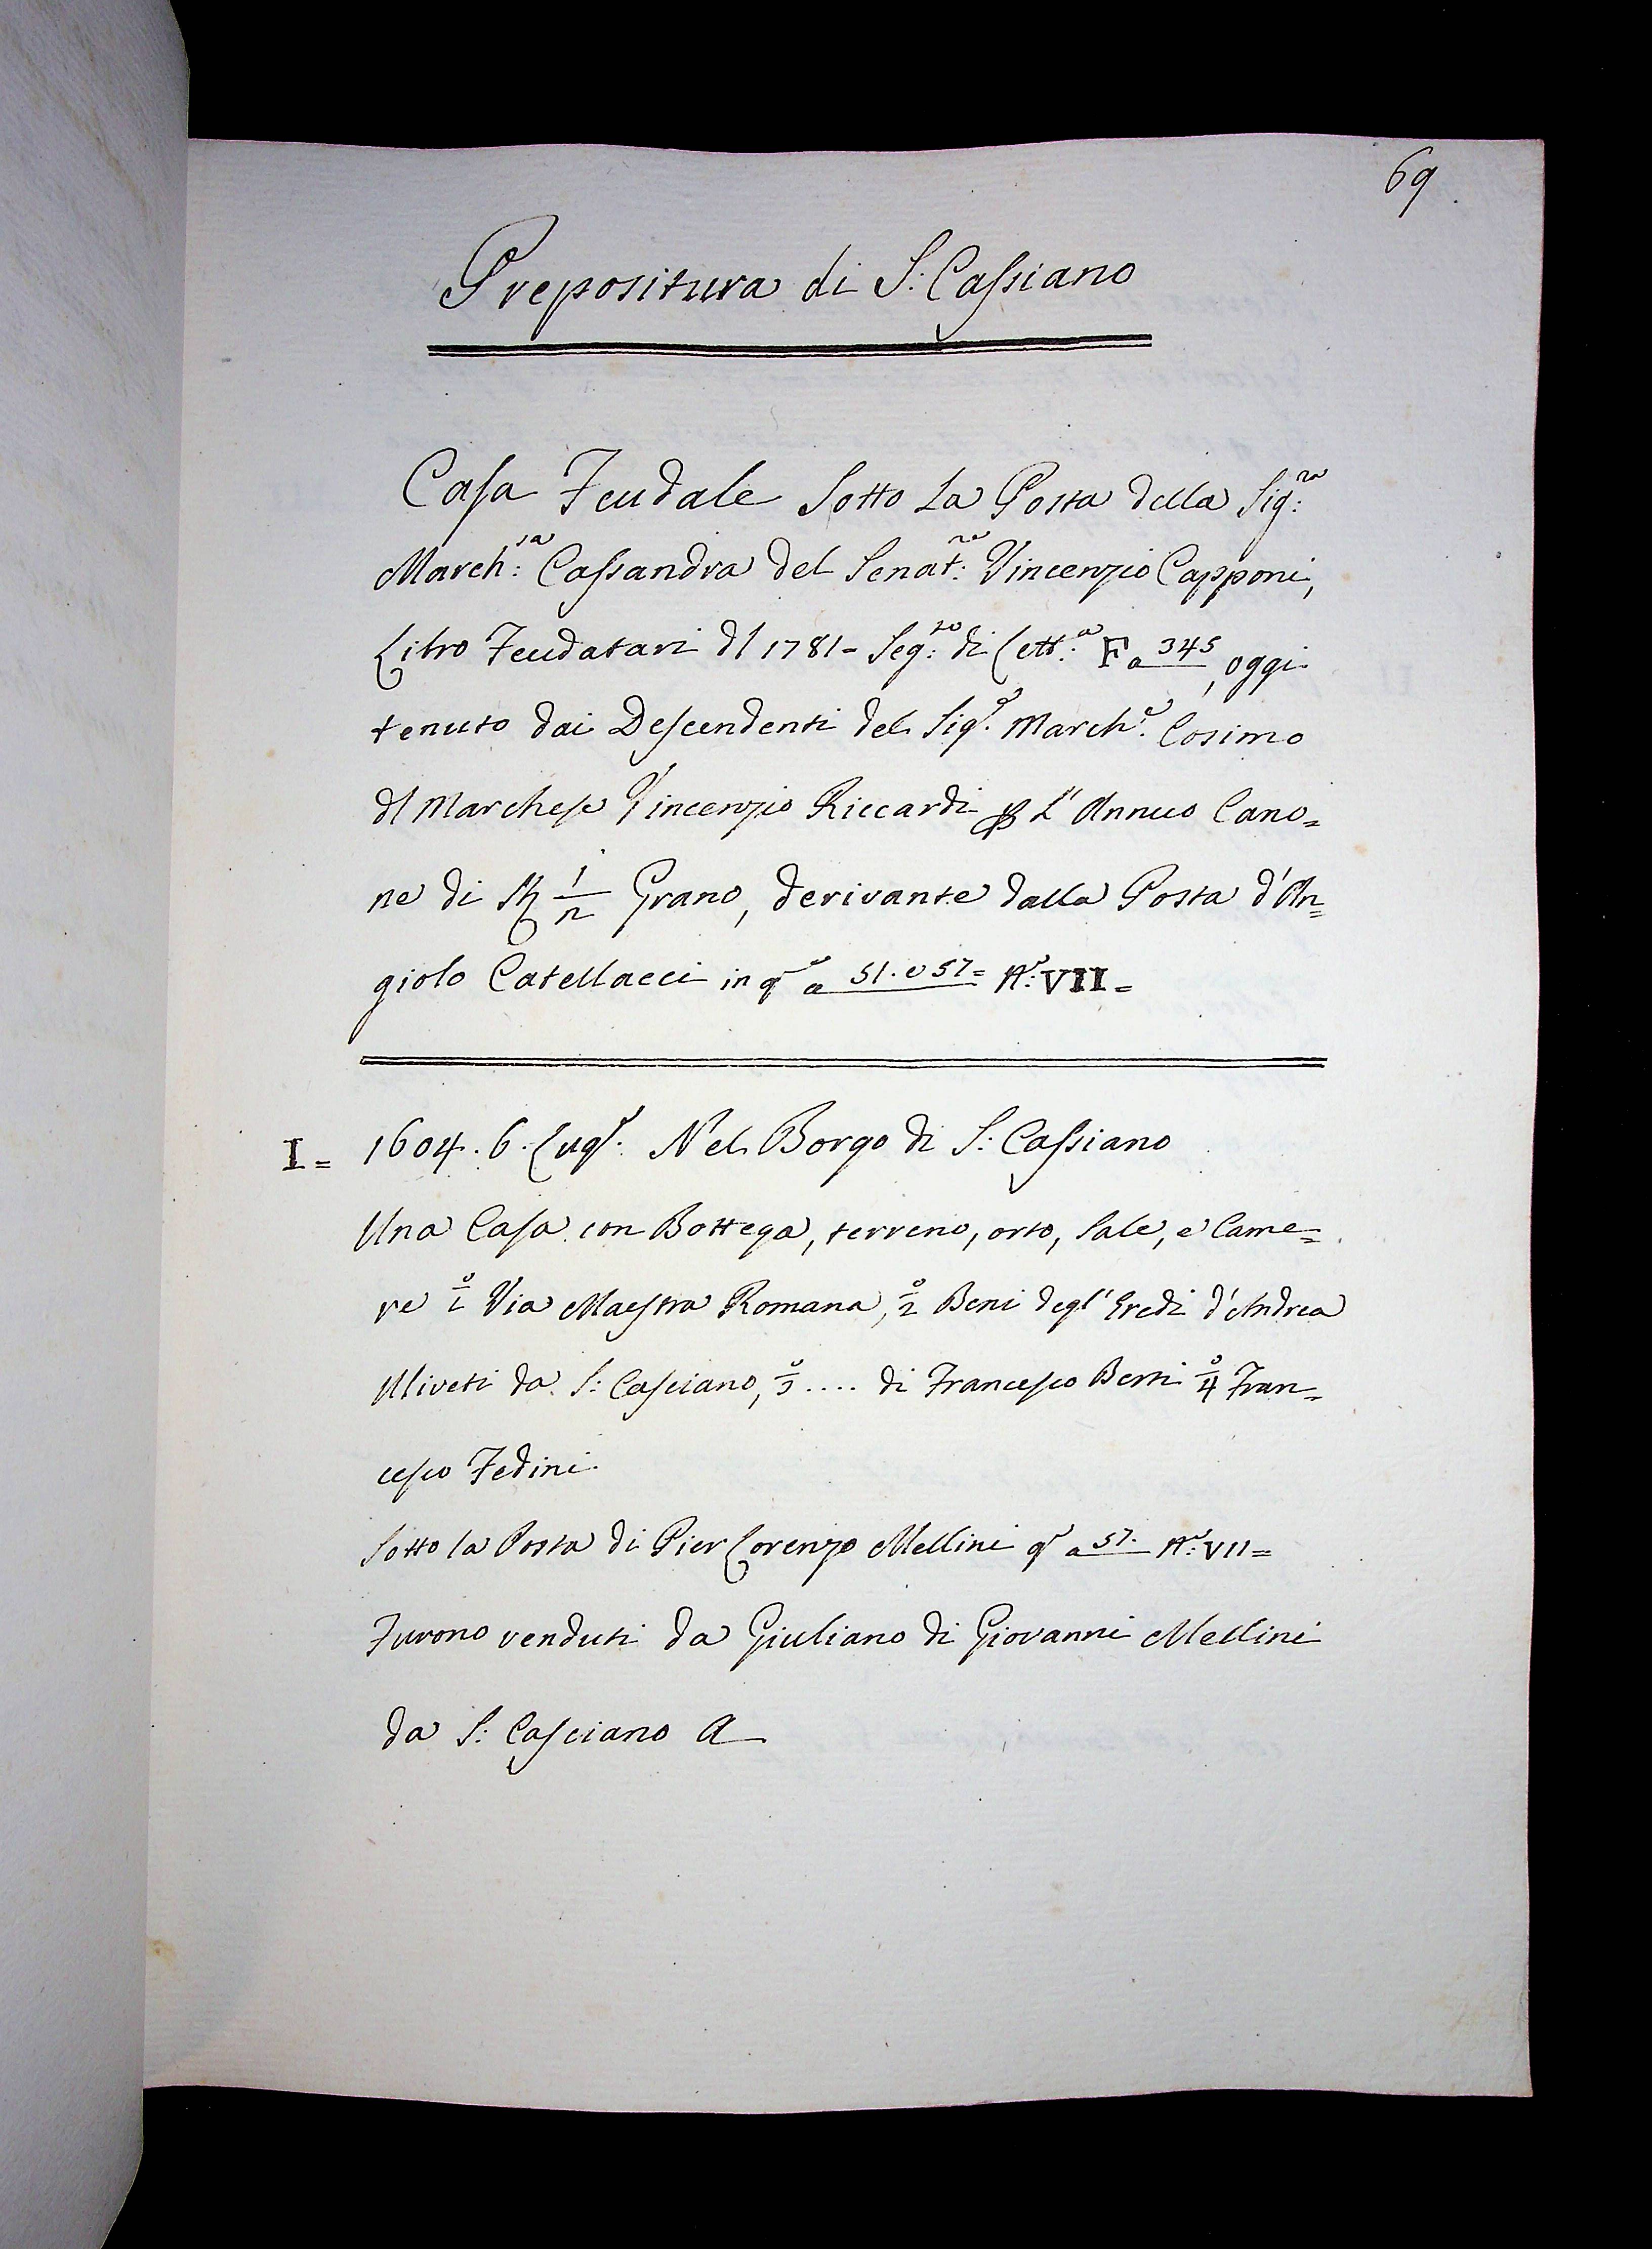 69
Prepositura di S: Cassiano
Casa Feudale Sotto La Posta della Sig:ra
March:sa Cassandra del Senat:re Vincenzio Capponi,
Libro Feudatari dl 1781- Seg:to di Lett:a F a 345, oggi
tenuto dai Descendenti del Sig.e March:e Cosimo
dl Marchese Vincenzio Riccardi p L' Annuo Cano=
ne di 1/n Grano, derivante dalla Posta d'An=
giolo Catellacci in q.o a 51. e 57= N:o VII=
I= 1604. 6. Lug.o Nel Borgo di S: Cassiano
Una Casa con Bottega, terreno, orto, Sale, e Came=
re o/1 Via Maestra Romana, o/2 Beni degl' Eredi d'Andrea
Uliveti da S: Casciano, o/3 .... di Francesco Berti o/4 Fran=
cesco Fedini
Sotto la Posta di Pier Lorenzo Mellini q.o a 57. N:o VII=
Furono venduti da Giuliano di Giovanni Mellini
da S: Casciano A